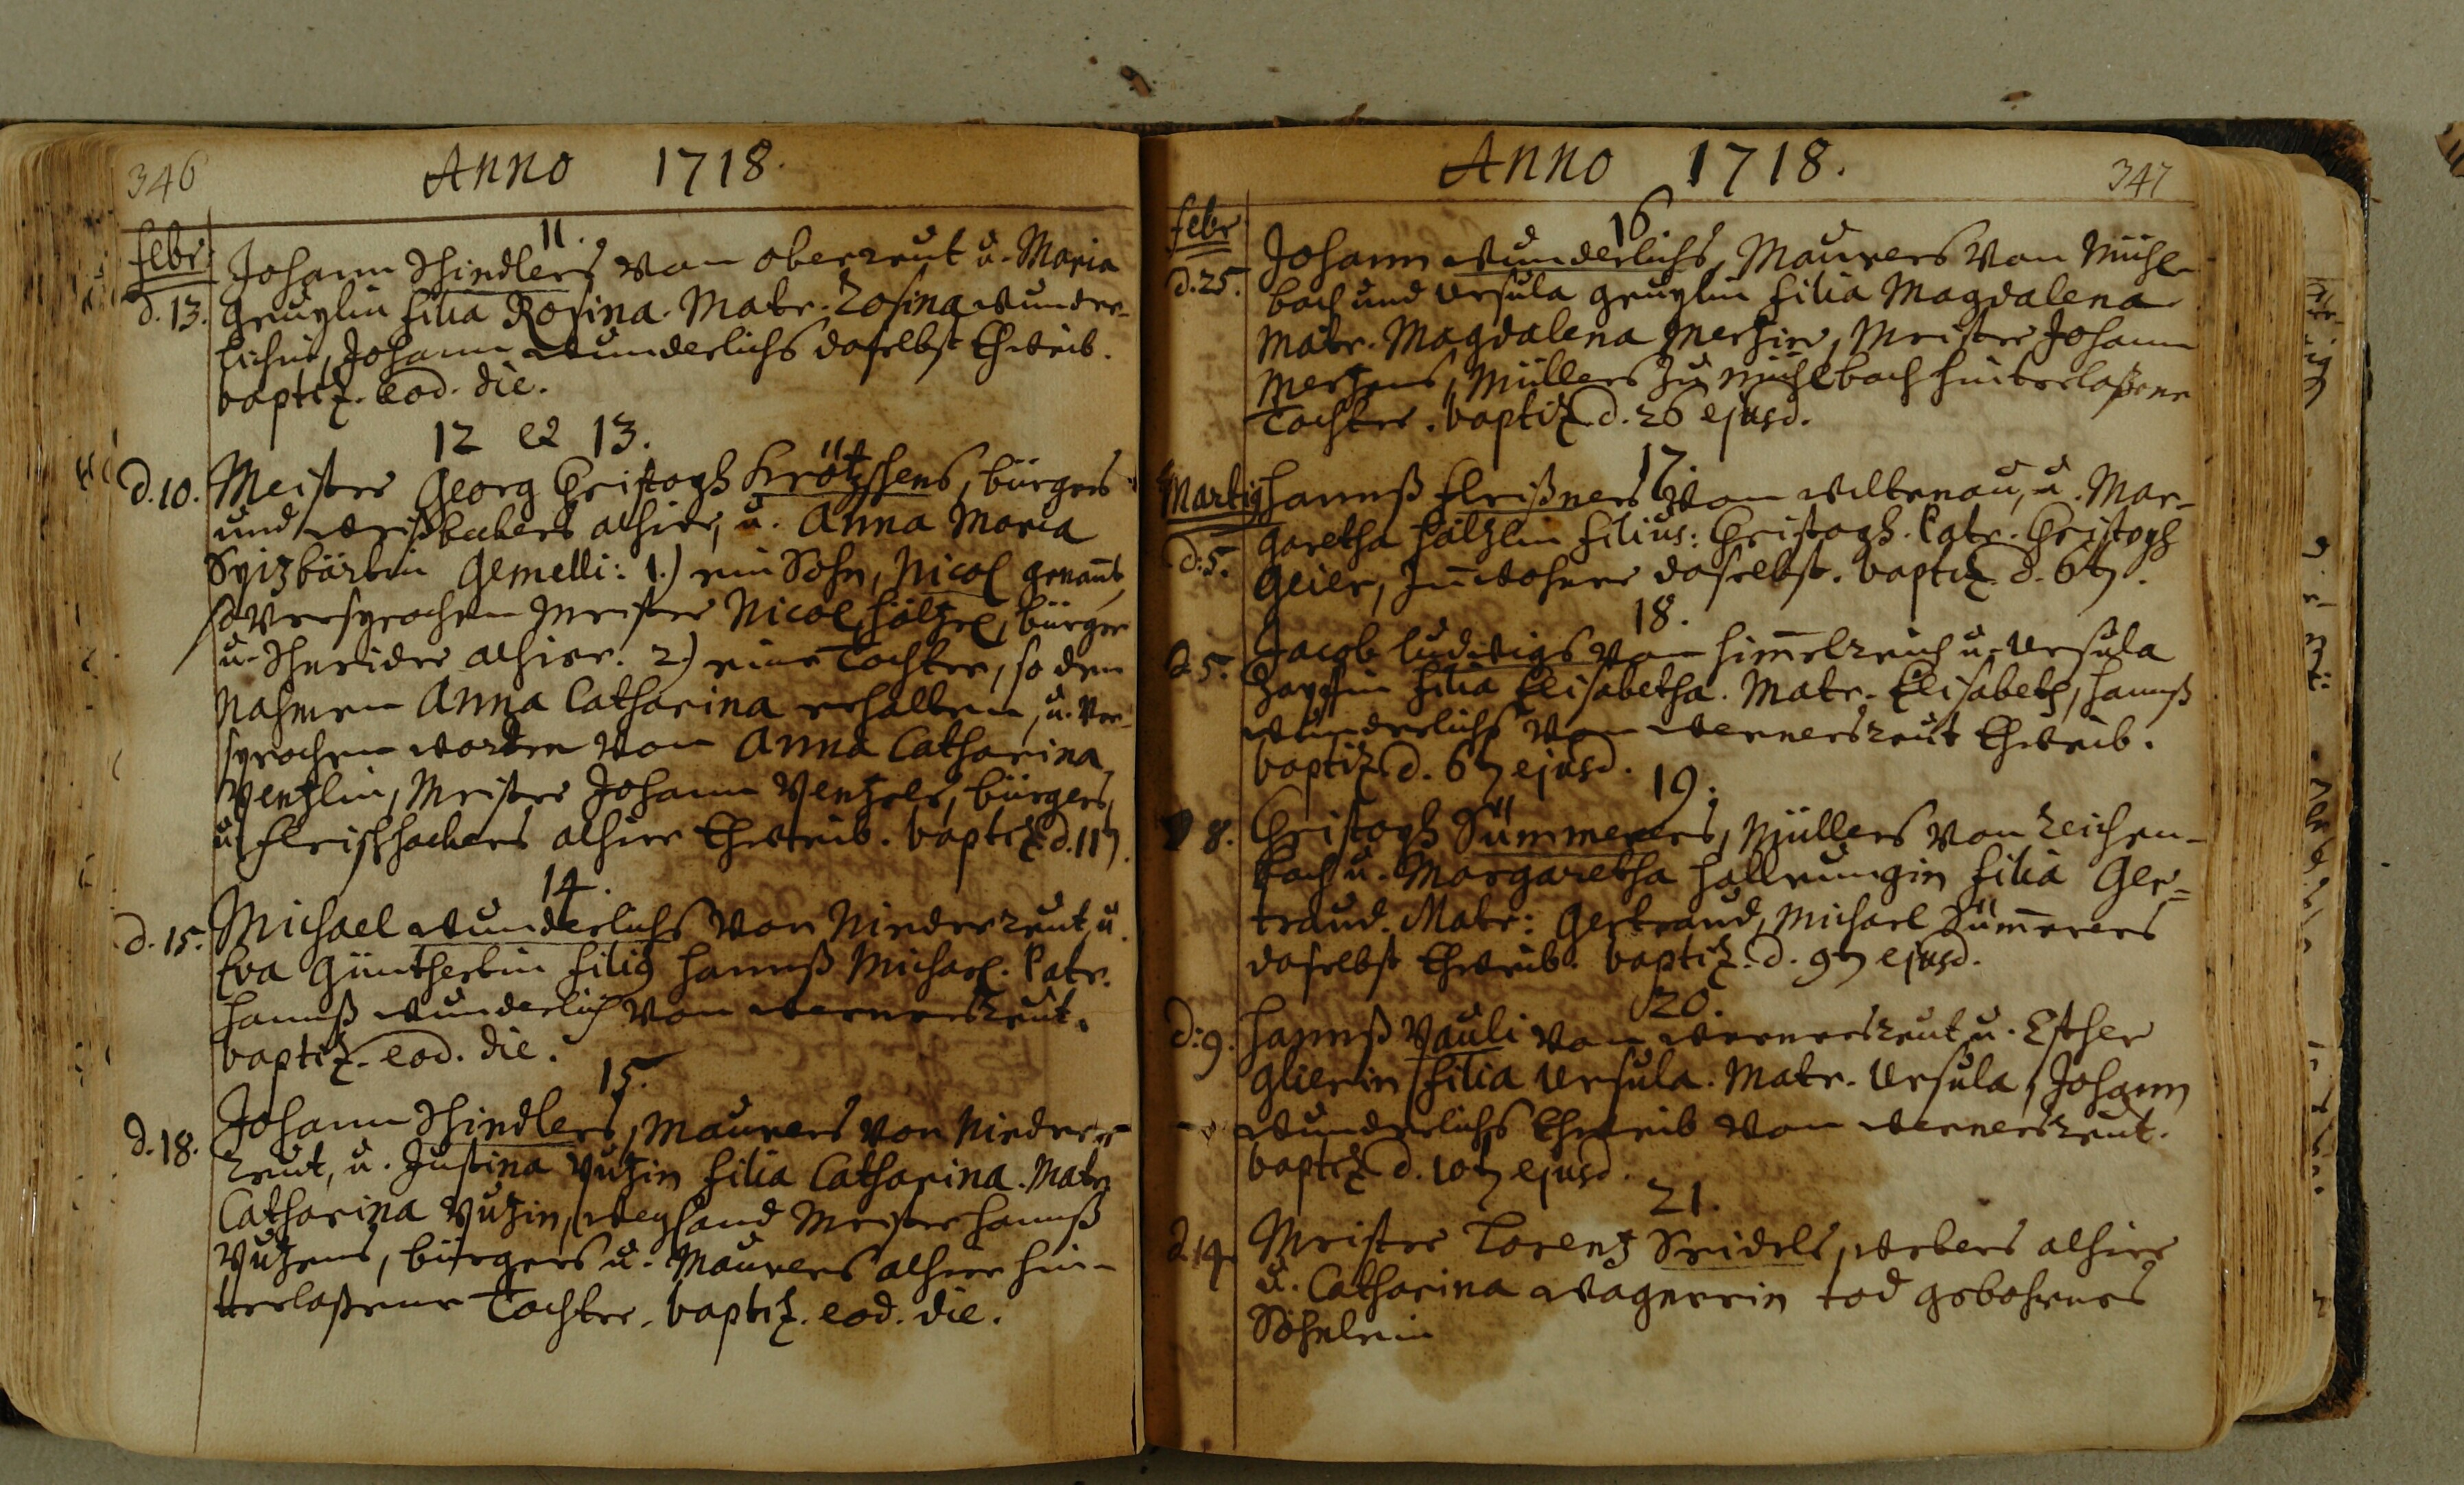 346
Anno 1718.
Febr.
11.
Johann Schindlers von Oberreut u. Maria
d. 13. filia Rosina. Matr. Rosina Wunder-
lichin, Johann Wunderlichs daselbst Eheweib.
baptiz. eod. die.
12 et 13.
d. 10. Meister Georg Christoph Krötzschens, bürgers
und Weißbeckers alhier, u. Anna Maria
Spizbärtin Gemelli: 1.) ein Sohn, Nicol genant,
so versprochen Meister Nicol Hölzel, bürger
u. Schneider alhier. 2.) eine Tochter, so den
Nahmen Anna Catharina erhalten, u. ver-
sprochen worden von Anna Catharina
Penzlin, Meister Johann Penzels, bürgers,
u. Fleischhackers alhier Eheweib. baptiz. d. 11.
14.
d. 15. Michael Wunderlichs von Niederreut, u.
Eva Güntherin filius Hannß Michael. Patr.
Hannß Wunderlich von Wernersreut.
baptiz. eod. die.
15.
d. 18. Johann Schindlers, Maurers von Nieder-
reut, u. Justina filia Catharina. Matr.
Catharina weyland Meister Hannß
bürgers u. Maurers alhier hin-
terlaßene Tochter. baptiz. eod. die.
Anno 1718.
347
Febr.
16
d. 25. Johann Wunderlichs, Maurers von Mühl-
bach und Ursula filia Magdalena
Matr. Magdalena Merzin, Meister Johann
Merzens, Müllers zu Mühlbach hinterlaßene
Tochter. baptiz. d. 26 ejusd.
17.
Martij Hannß Fleißners von Altenau, u. Mar-
d. 5. garetha Hölzlin filius: Christoph. Patr. Christoph
Geier, Inwohner daselbst. baptiz. d. 6.
18.
d. 5. Jacob Ludwigs von Himmelreich u. Ursula
Zapfin filia Elisabetha. Matr. Elisabeth, Hannß
Wunderlichs von Wernersreut Eheweib.
baptiz. d. 6 ejusd.
19.
8. Christoph Sümmerers, Müllers von Reichen-
bach u. Margaretha filia Ger-
traud. Matr: Gertraud, Michael Sümerers
daselbst Eheweib. baptiz. d. 9 ejusd.
20.
d. 9. Hannß Pauli von Wernersreut u. Esther
Glierin filia Ursula. Matr. Ursula, Johann
Wunderlichs Eheweib von Wernersreut.
baptiz. d. 10 ejusd.
21.
d. 14 Meister Lorenz Seidels, Webers alhier
u. Catharina Wagnerin tod gebohrnes
Söhnlein